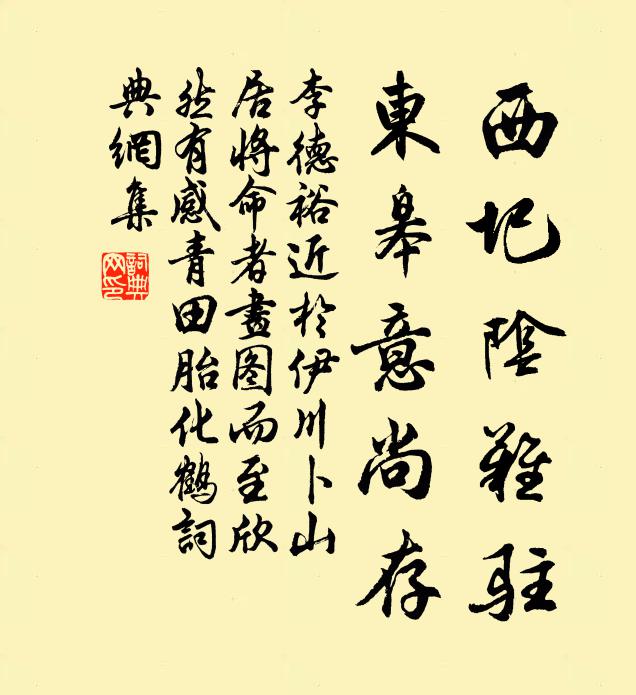 西圯陰難駐
東皋意尚存
李德裕近於伊川卜山
居將命者畫图而至欣
然有感青田胎化鶴詞
典網集
詞典
网印